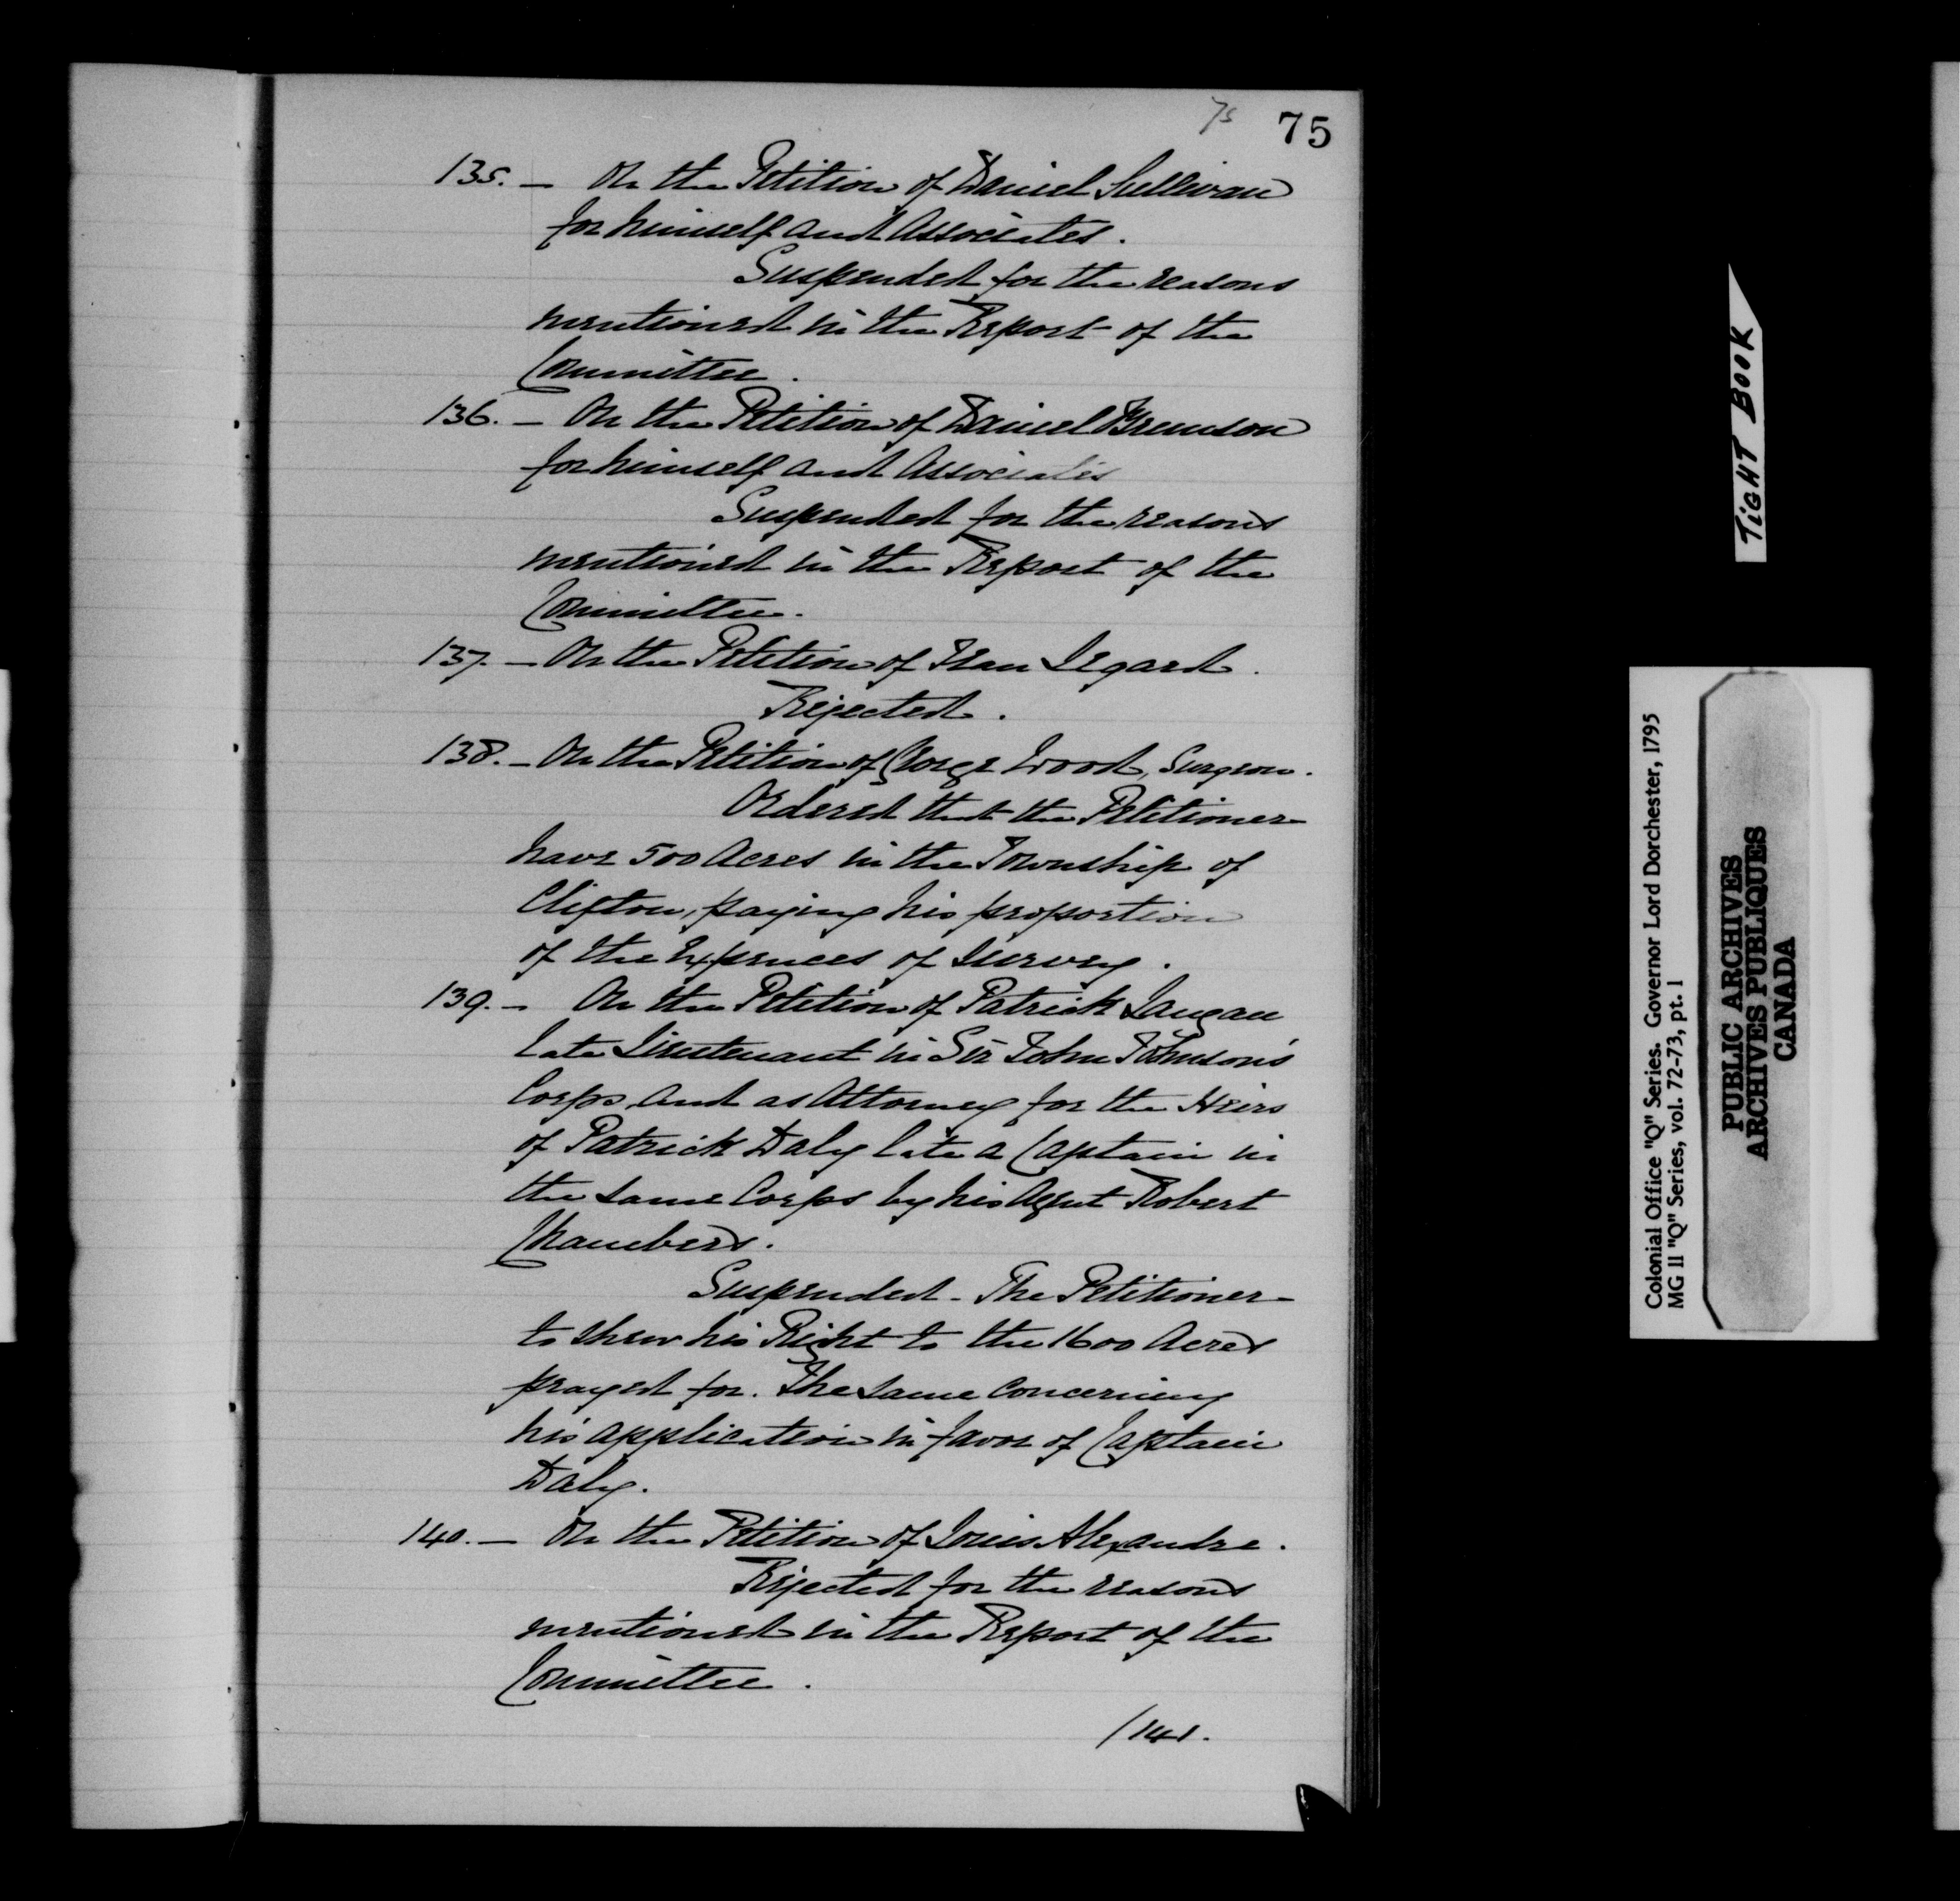 75
75
135. — On the Petition of Daniel Sullivan
for himself and Associates.
Suspended for the reasons
mentioned in the Report of the
Committee.
136. — On the Petition of Daniel Brunson
for himself and Associates
Suspended for the reasons
mentioned in the Report of the
Committee.
137. — On the Petition of Jean Legard.
Rejected.
138. — On the Petition of George Wood, Surgeon.
Ordered that the Petitioner
have 500 Acres in the Township of
Clifton, paying his proportion
of the Expences of Survey.
139. — On the Petition of Patrick Langan
late Lieutenant in Sir John Johnson's
Corps, and as Attorney for the Heirs
of Patrick Daly late a Captain in
the same Corps by his Agent Robert
Chambers.
Suspended - The Petitioner
to shew his Right to the 1600 Acres
prayed for. The same concerning
his application in favor of Captain
Daly.
140. — On the Petition of Louis Alexandre.
Rejected for the reasons
mentioned in the Report of the
Committee.
/141.
TIGHT BOOK
Colonial Office "Q" Series. Governor Lord Dorchester, 1795
MG 11 "Q" Series, vol. 72-73, pt. 1
PUBLIC ARCHIVES
ARCHIVES PUBLIQUES
CANADA